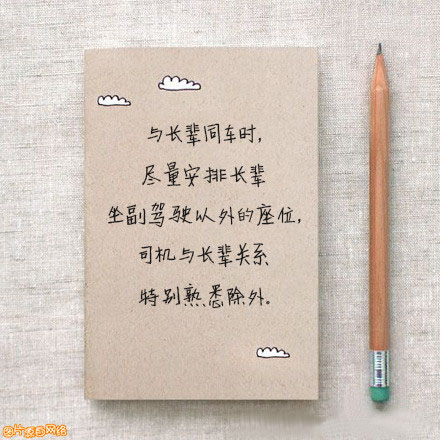 与长辈同车时,
尽量安排长辈
坐副驾驶以外的座位,
司机与长辈关系
特别熟悉除外。
图片来自网络